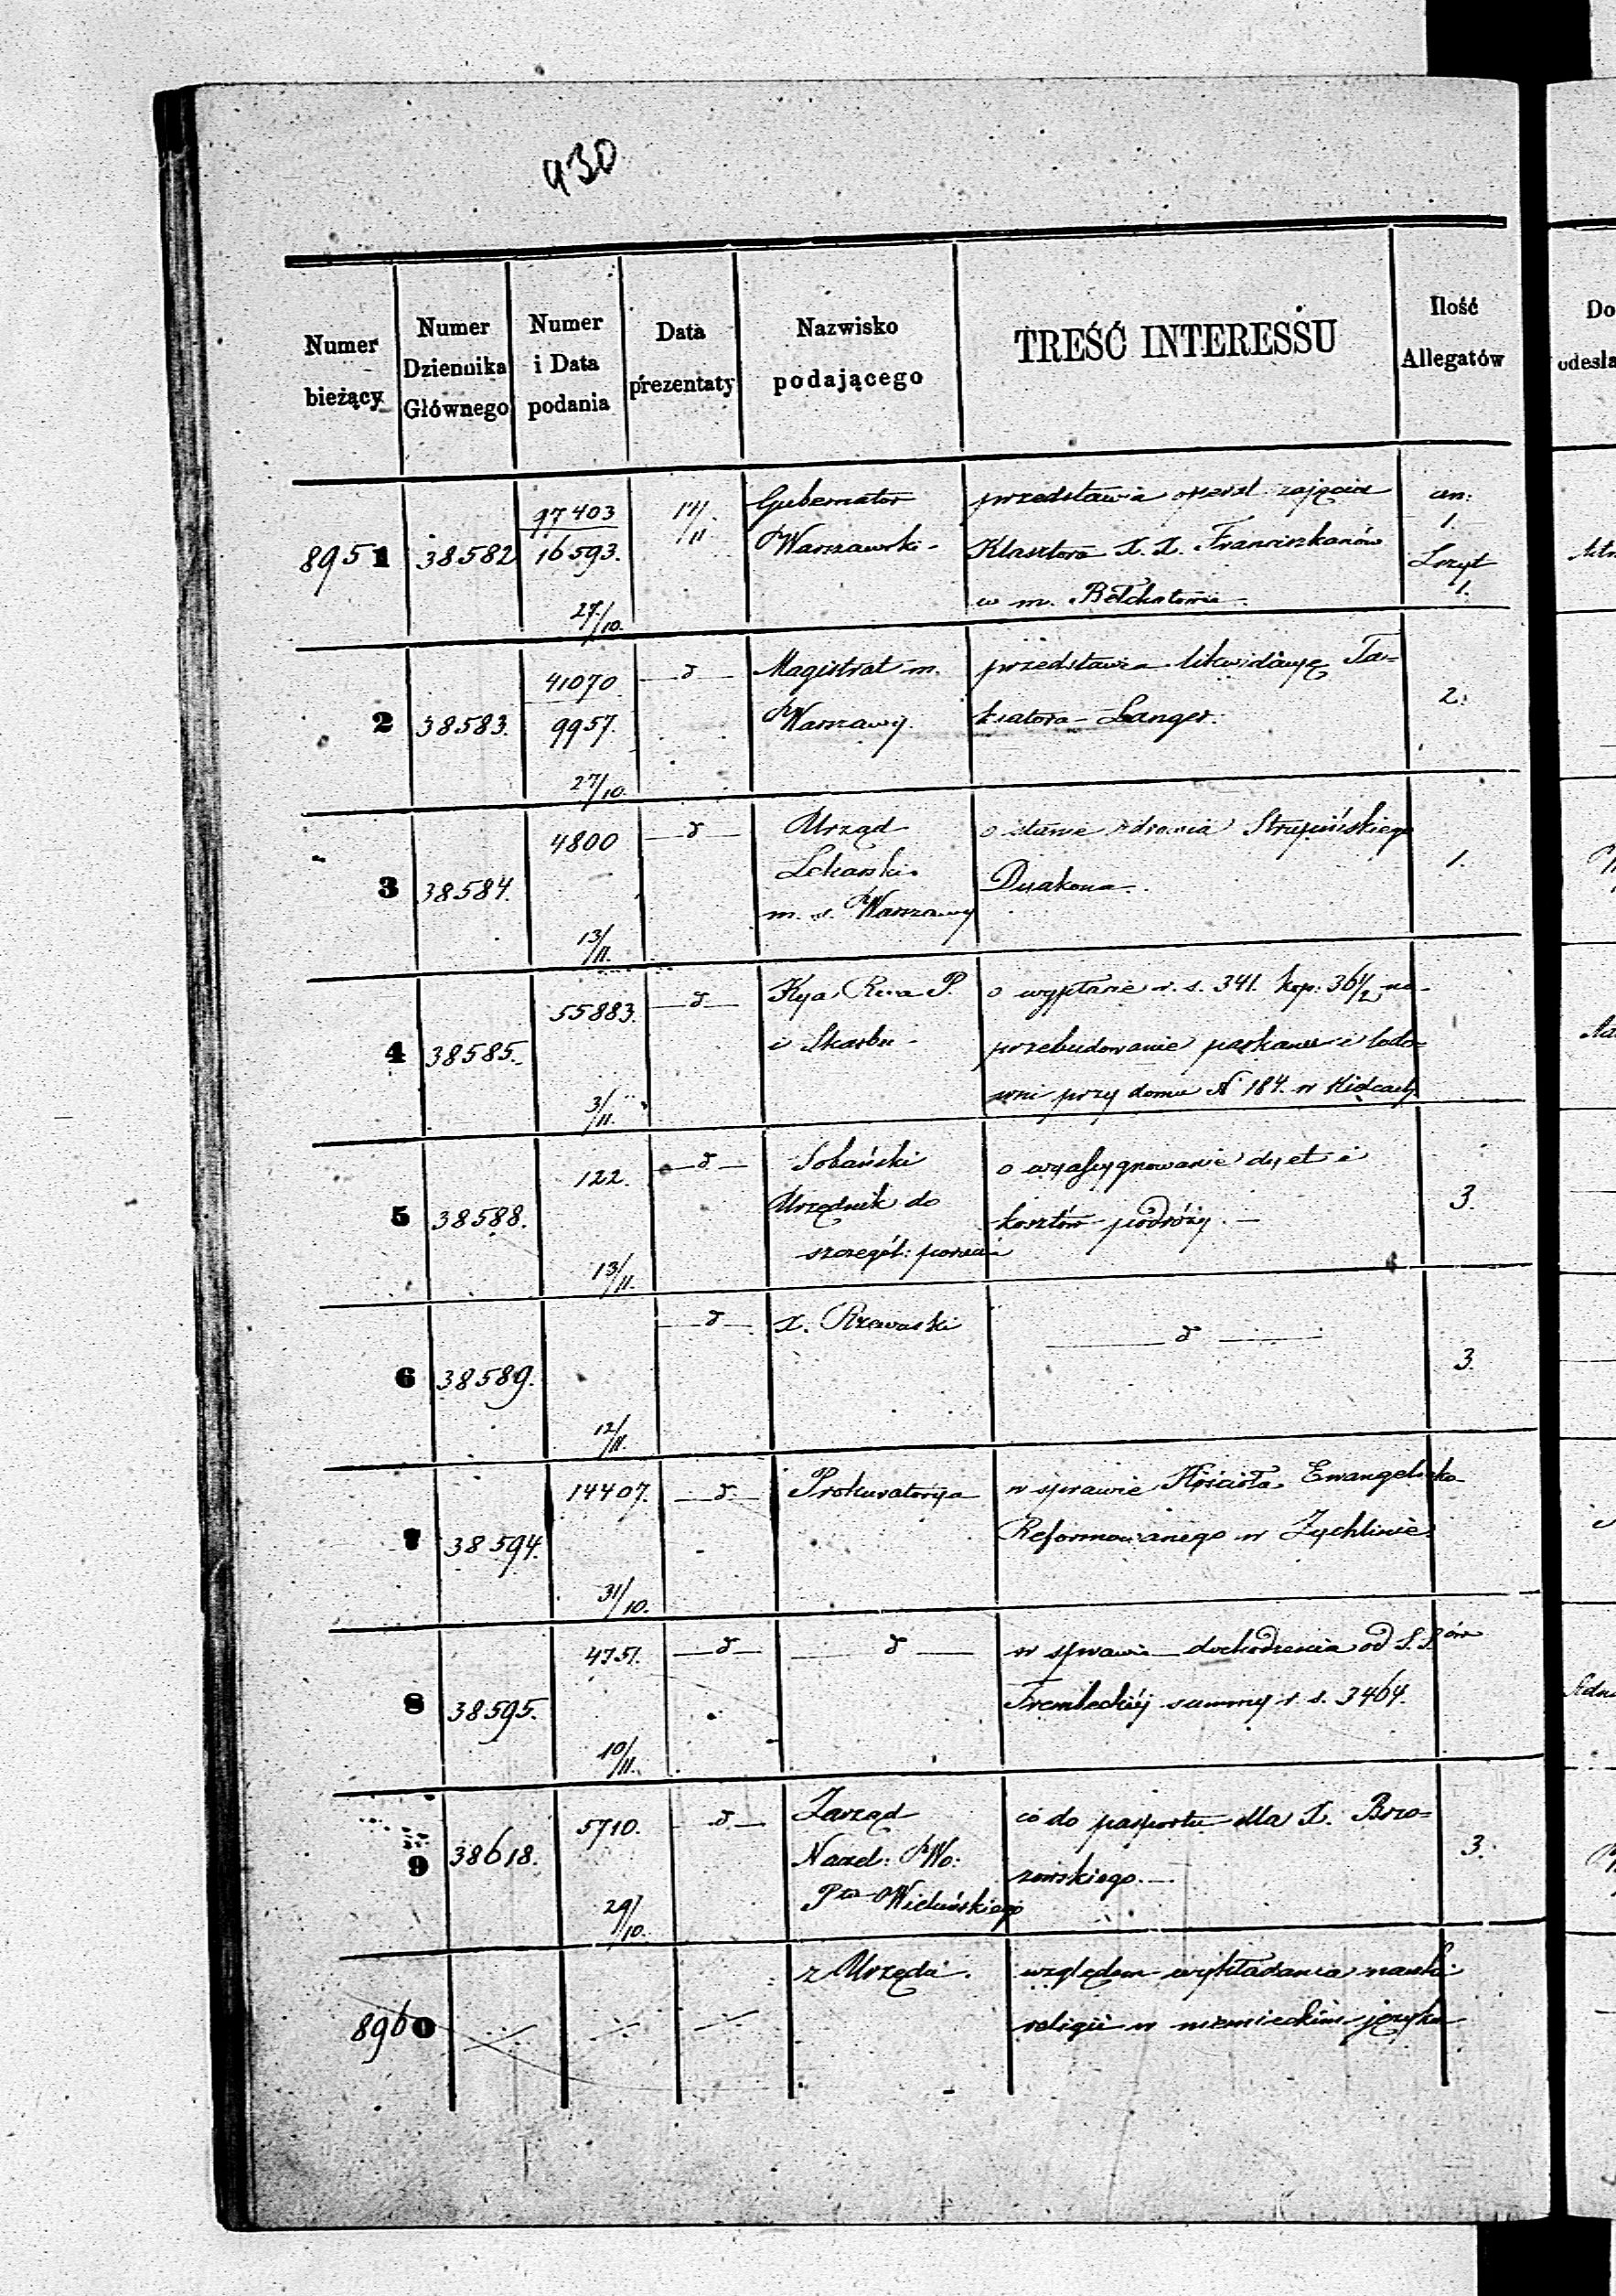 930
Numer bieżący
Numer Dziennika Głównego
Numer i Data podania
Data prezentaty
Nazwisko podającego
TREŚĆ INTERESSU
Ilość Allegatów
8951 38582 97403 14/11 Gubernator przedstawia zajęcia an: 1.
16593. Warszawski Klasztora X. X. Franciszkanów
27/10. w m. Bełchatowie 1.
2 38583. 41070 d Magistrat m. przedstawia likwidacyę Ta= 2.
9957. Warszawy. ksatora Langer.
27/10.
3 38584. 4800 d Urząd o stanie zdrowia 1.
Lekarski Dyakona.
13/11. m. s. Warszawy
4 38585. 55883. d Kya Rwa P. o wypłacie r. s. 341. kop. 36 1/2 na
i Skarbu przebudowanie parkanu i lodo=
3/11. wni przy domu N 184. w Kielcach
5 38588. 122. d Sobański o wyassygnowanie dyet i 3.
Urzędnik do kosztów podróży.
13/11. szczegól:
6 38589. d X. d 3.
12/11.
7 38594. 14407. d Prokuratorya w sprawie Kościoła Ewangelicko
Reformowanego w Żychlinie.
31/10.
8 38595. 4751. d d w sprawie dochodzenia od S. S ów
Trembeckiéj summy r. s. 3464.
10/11.
9 38618. 5710. d Zarząd co do pasportu dla X. Brzo= 3.
Naczel: Wo: zowskiego.
29/10. Ptu Wieluńskiego
8960 z Urzędu. względem wykładania nauki
religii w niemieckim języku